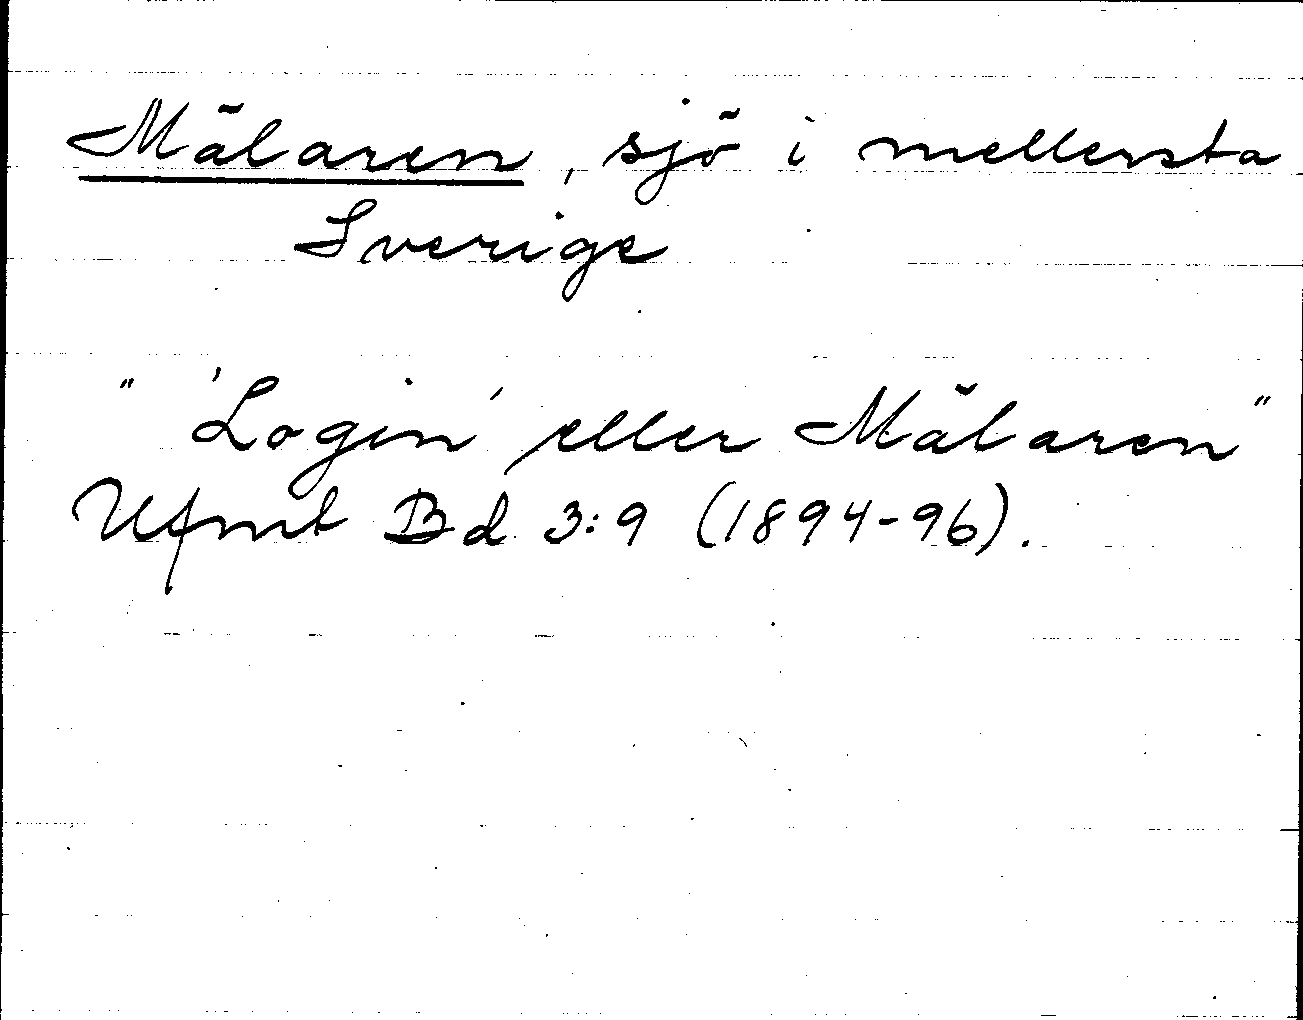 Mälaren, sjö i mellersta
Sverige
" 'Login' eller Mälaren "
Ufmt Bd 3:9 (1894-96).